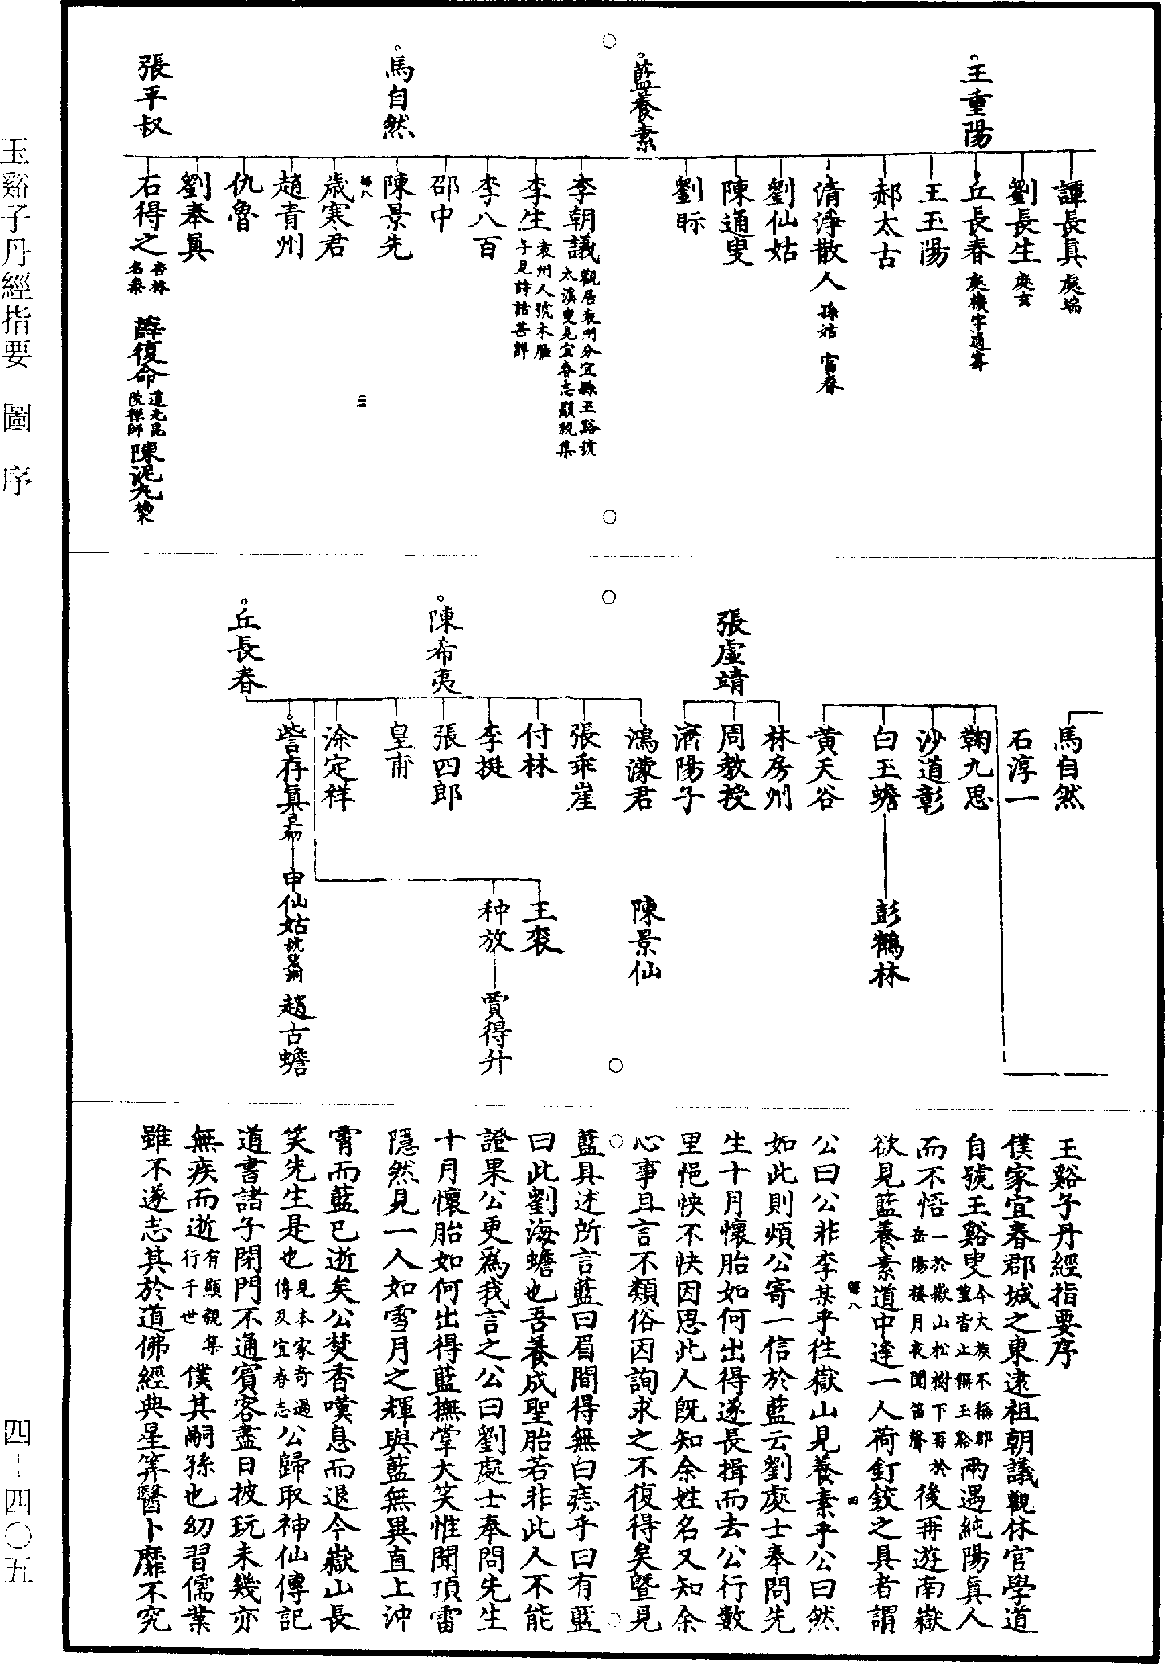 玉谿子丹經指要　圖　序
四－四〇五
王重陽
譚長真處端
劉長生處玄
丘長春處機字通密
王玉陽
郝太古
清淨散人孫姑富春
劉仙姑
陳通叟
劉昞
藍養素
李朝議觀居袁州分宜縣玉谿號太溪叟見宜春志顯觀集
李生袁州人號木
李八百
邵中
馬自然
陳景先
歲寒君
趙青州
仇魯
劉奉真
張平叔
石得之杏林名泰
薛復命道光毘陵禪師
陳泥丸楠
馬自然
石淳一
鞠九思
沙道彰
白玉蟾
彭鶴林
黃天谷
張虛靖
林房州
周教授
濟陽子
鴻濛君
陳景仙
陳希夷
張乖崖
付林
李挺
張四郎
皇甫
涂定祥
王衮
种放
賈得升
丘長春
訾存真
申仙姑
趙古蟾
玉谿子丹經指要序
僕家宜春郡城之東遠祖朝議觀休官學道
自號玉谿叟今大族不稱郡望皆止稱玉谿兩遇純陽真人
而不悟一於嶽山松樹下再於岳陽樓月夜聞笛聲後再遊南嶽
欲見藍養素道中逢一人荷釘鉸之具者謂
公曰公非李某乎往嶽山見養素乎公曰然
如此則煩公寄一信於藍云劉處士奉問先
生十月懷胎如何出得遂長揖而去公行數
里悒怏不快因思此人既知余姓名又知余
心事且言不類俗因詢求之不復得矣暨見
藍具述所言藍曰眉間得無白痣乎曰有藍
曰此劉海蟾也吾養成聖胎若非此人不能
證果公更為我言之公曰劉處士奉問先生
十月懷胎如何出得藍撫掌大笑惟聞頂雷
隱然見一人如雪月之輝與藍無異直上沖
霄而藍已逝矣公焚香嘆息而退今嶽山長
笑先生是也見本家奇遇傳及宜春志公歸取神仙傳記
道書諸子閉門不通賓客盡日披玩未幾亦
無疾而逝有顯觀集行于世僕其嗣孫也幼習儒業
雖不遂志其於道佛經典星算醫卜靡不究